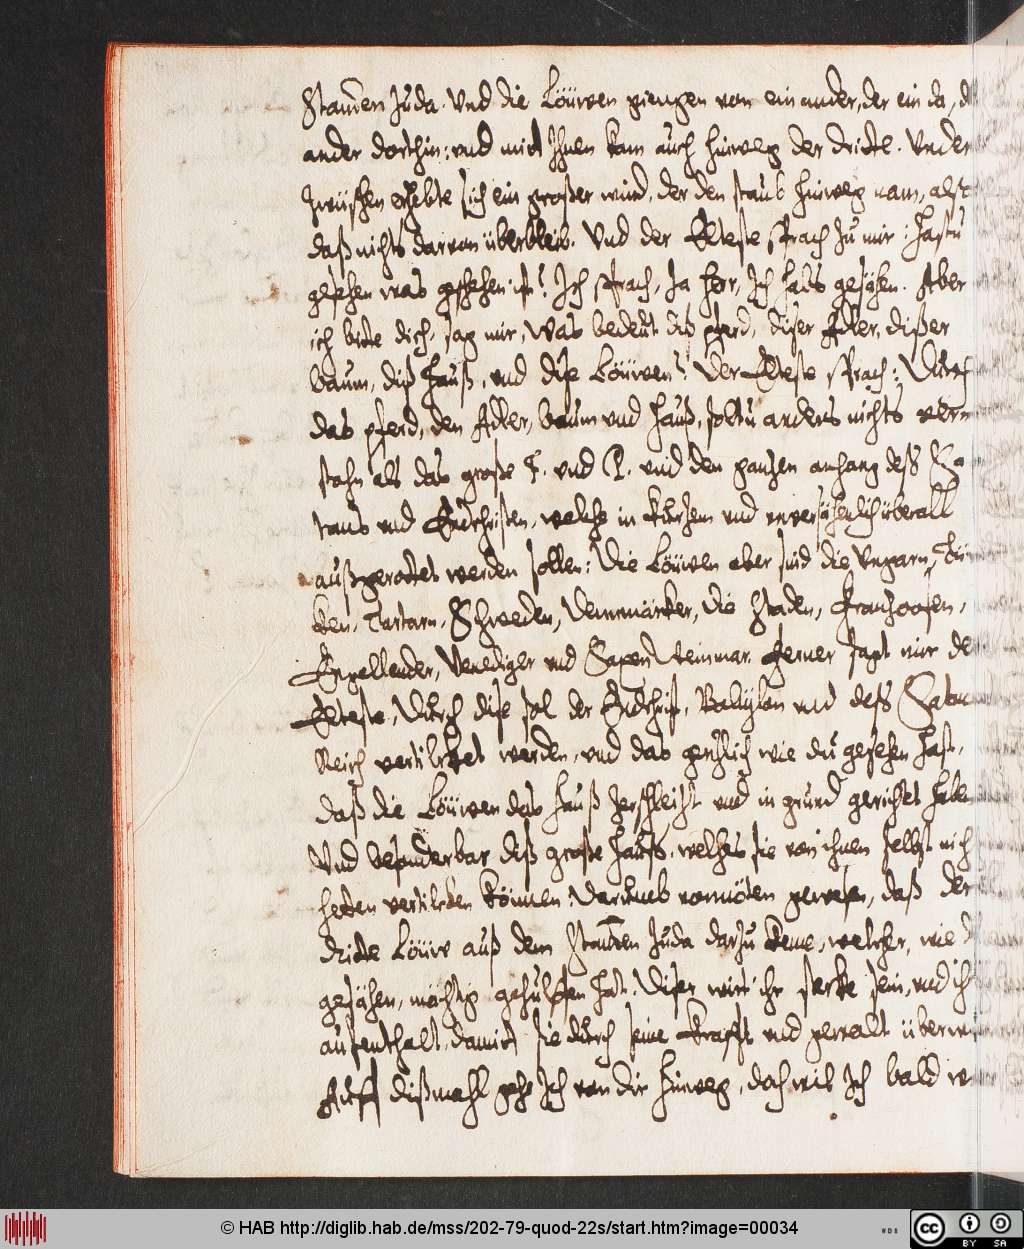 Stam̃en Juda. Vnd die Löüwen giengen von ein ander, der ein da, d
ander dorthin: vnd mit Ihnen kam auch hinweg der dritte. Vnder
Zwüschen erhebte sich ein großer wind, der den staub hinweg nam, also
daß nichts darvon überbleib. Vnd der Elteste sprach zu mir: Hastu
gesehen was geschehen ist? Ich sprach, Ja Herr, Ich habs gesähen. Aber
ich bitte dich, sag mir, was bedeüt diß pferd, diser Adler, dißer
baum, diß Hauß, vnd dise Löüwen? Der Elteste sprach: Durch
das pferd, den Adler, baum vnd Hauß, soltu anders nichts ver=
stahn als das große vnd vnd den gantzen anhang deß Sa
tans vnd Endchristen, welche in kurtzem vnd unversähenlich überall
außgerottet werden sollen: Die Löüwen aber sind die Vngarn, Tür
cken, Tartarn, Schweden, Dennmärcker, die Staden, Frantzosen,
Engellender, Venediger vnd Saxen Weinmar. Ferner sagt mir de
Elteste, Durch dise sol der Endchrist, Babylon vnd deß Satan
Reich vertilcket werden, vnd das gentzlich wie du gesehen hast,
daß die Löüwen das Hauß zerschleißt vnd in grund gerichtet habe
Vnd besonderbar diß große Hauß, welches sie von ihnen selbst nich
hetten vertilcken können: Darumb vonnöten gewesen, daß der
dritte Löüw auß dem Stam̃en Juda darzu keme, welcher, wie d
gesähen, mächtig gehulffen hat. Diser wirt ihr sterke sein, vnd ih
aufenthalt, damit sie durch seine Krafft vnd gewalt überwi
Auff dißmahl gehe Ich von dir hinweg, doch wil Ich bald w
© HAB http://diglib.hab.de/mss/202-79-quod-22s/start.htm?image=00034
WDB
cc BY SA